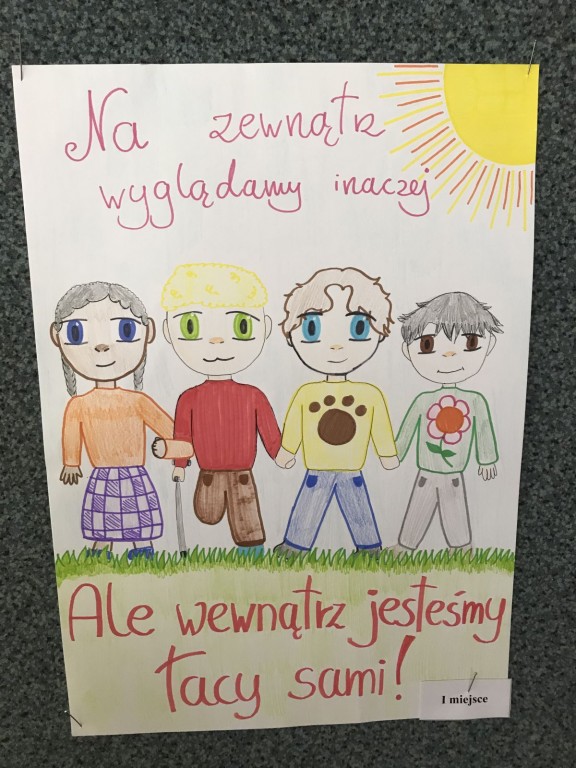 Na zewnątrz
wyglądamy inaczej
Ale wewnątrz jesteśmy
tacy sami!
I miejsce